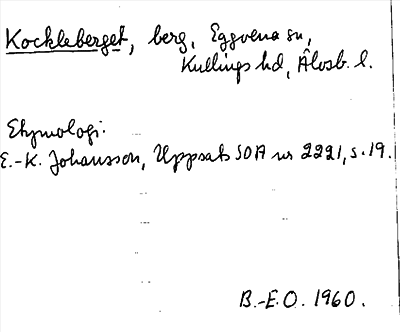 Kockleberget, berg, Eggvena sn,
Kullings hd, Älvsb. l.
Etymologi:
E.-K. Johansson, Uppsats SOA nr 2221, s. 19.
B.-E.O. 1960.